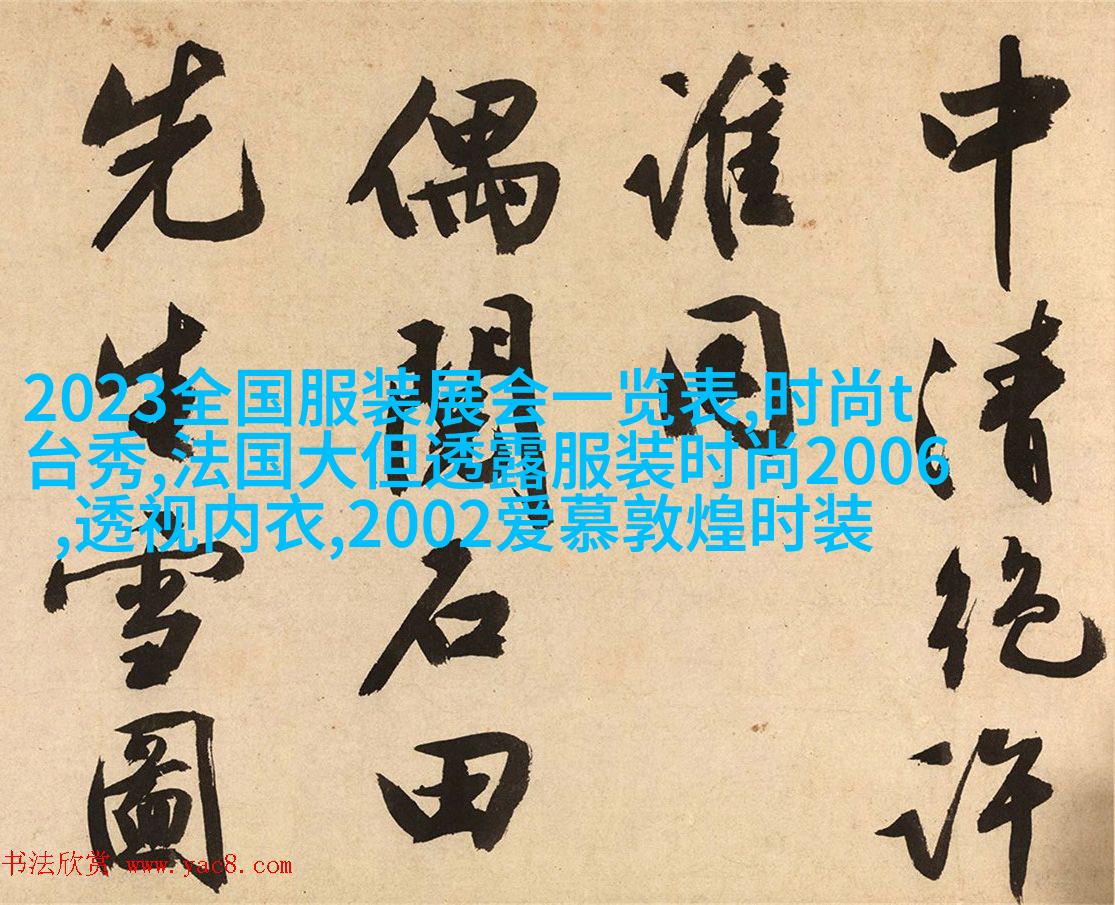 中清絕許
誰同
偶閱石田
先生雪圖
2023全国服装展会一览表,时尚t
台秀,法国大但透露服装时尚2006
,透视内衣,2002爱慕敦煌时装
书法欣赏 www.yac8.com